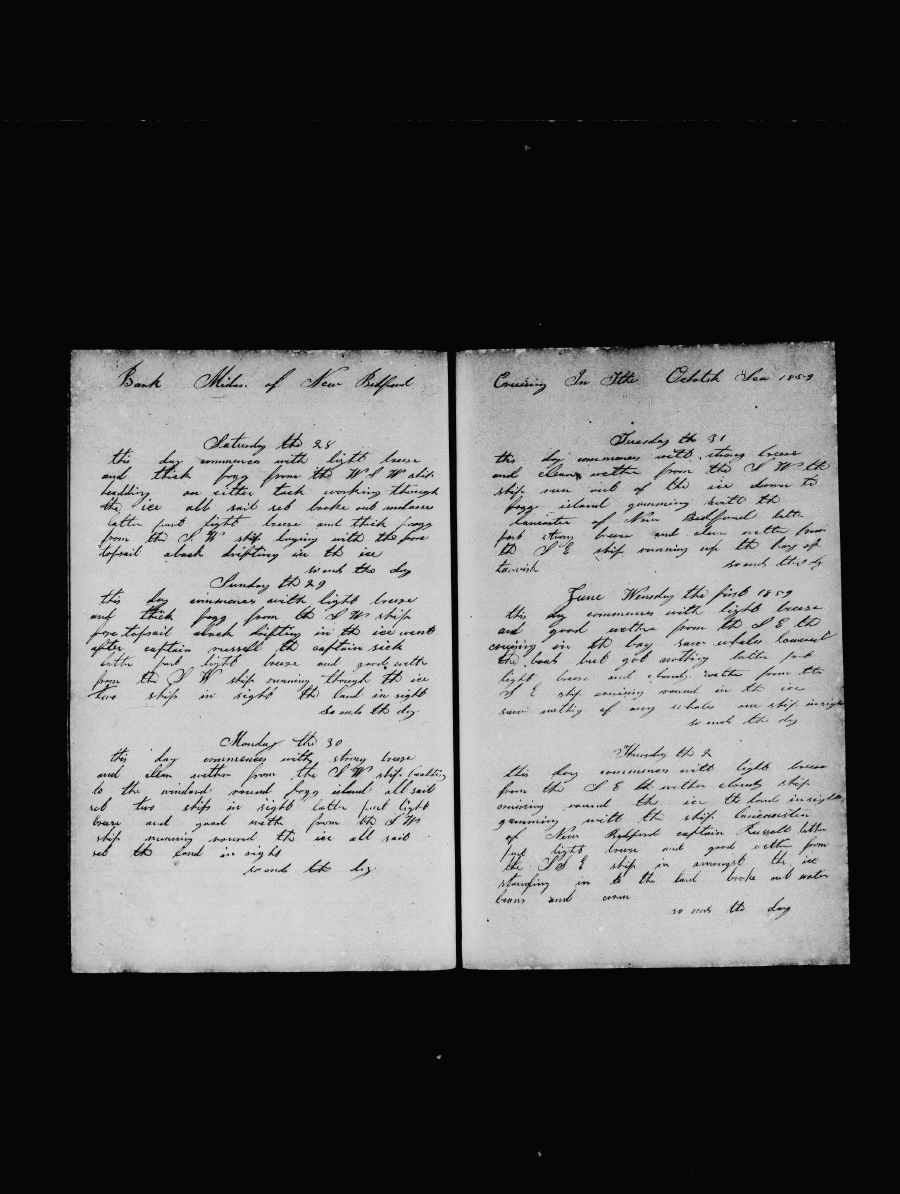 Bark Midas of New Bedford
Saturday the 28
this day commences with light breeze
and thick fogg from the W S W ship
hedding on either tack working through
the ice all sail set broke out molasses
latter part light breeze and thick fogg
from the S W ship laying with the fore
topsail aback drifting in the ice
so ends the day
Sunday th 29
this day commences with light breeze
and thick fogg from th S W ship
fore topsail aback drifting in th ice went
after captain russell th captain sick
latter part light breeze and good weth
from the S W ship running though th ice
two ship in sight the land in sight
so ends th day
Monday the 30
this day commences with strong breeze
and clear wether from the S W ship beating
to the windard round fogg island all sail
set two ships in sight latter part light
breze and good weth from th S W
ship running around th ice all sail
set th land in sight
so ends th day
Cruising In Ithe Ochotsk Sea 1859
Tuesday th 31
this day commences with strong breeze
and clear wether from the S W th
ship run out of the ice down to
fogg island gamming with th
lancaster of New Bedford latter
part strong breeze and clear wether from
th S E ship running up th bay of
so ends th dy
June Wensday the first 1859
this day commences with light breeze
and good wether from th S E th
cruising in th bay saw whales lowered
the boats but got nothing latter part
light breze and cloudy wether from the
S E ship cruising round in th ice
saw nothing of any whales one ship in sight
so ends th day
Thursday th 2
this day commences with light breeze
from the S E th wether cloudy ship
cruising round the ice th land in sight
gamming with th ship
of New Bedford captain Russell latter
part light breeze and good wether from
the S S E ship in amongst th ice
standing in to the land broke out water
beans and corn
so ends the day